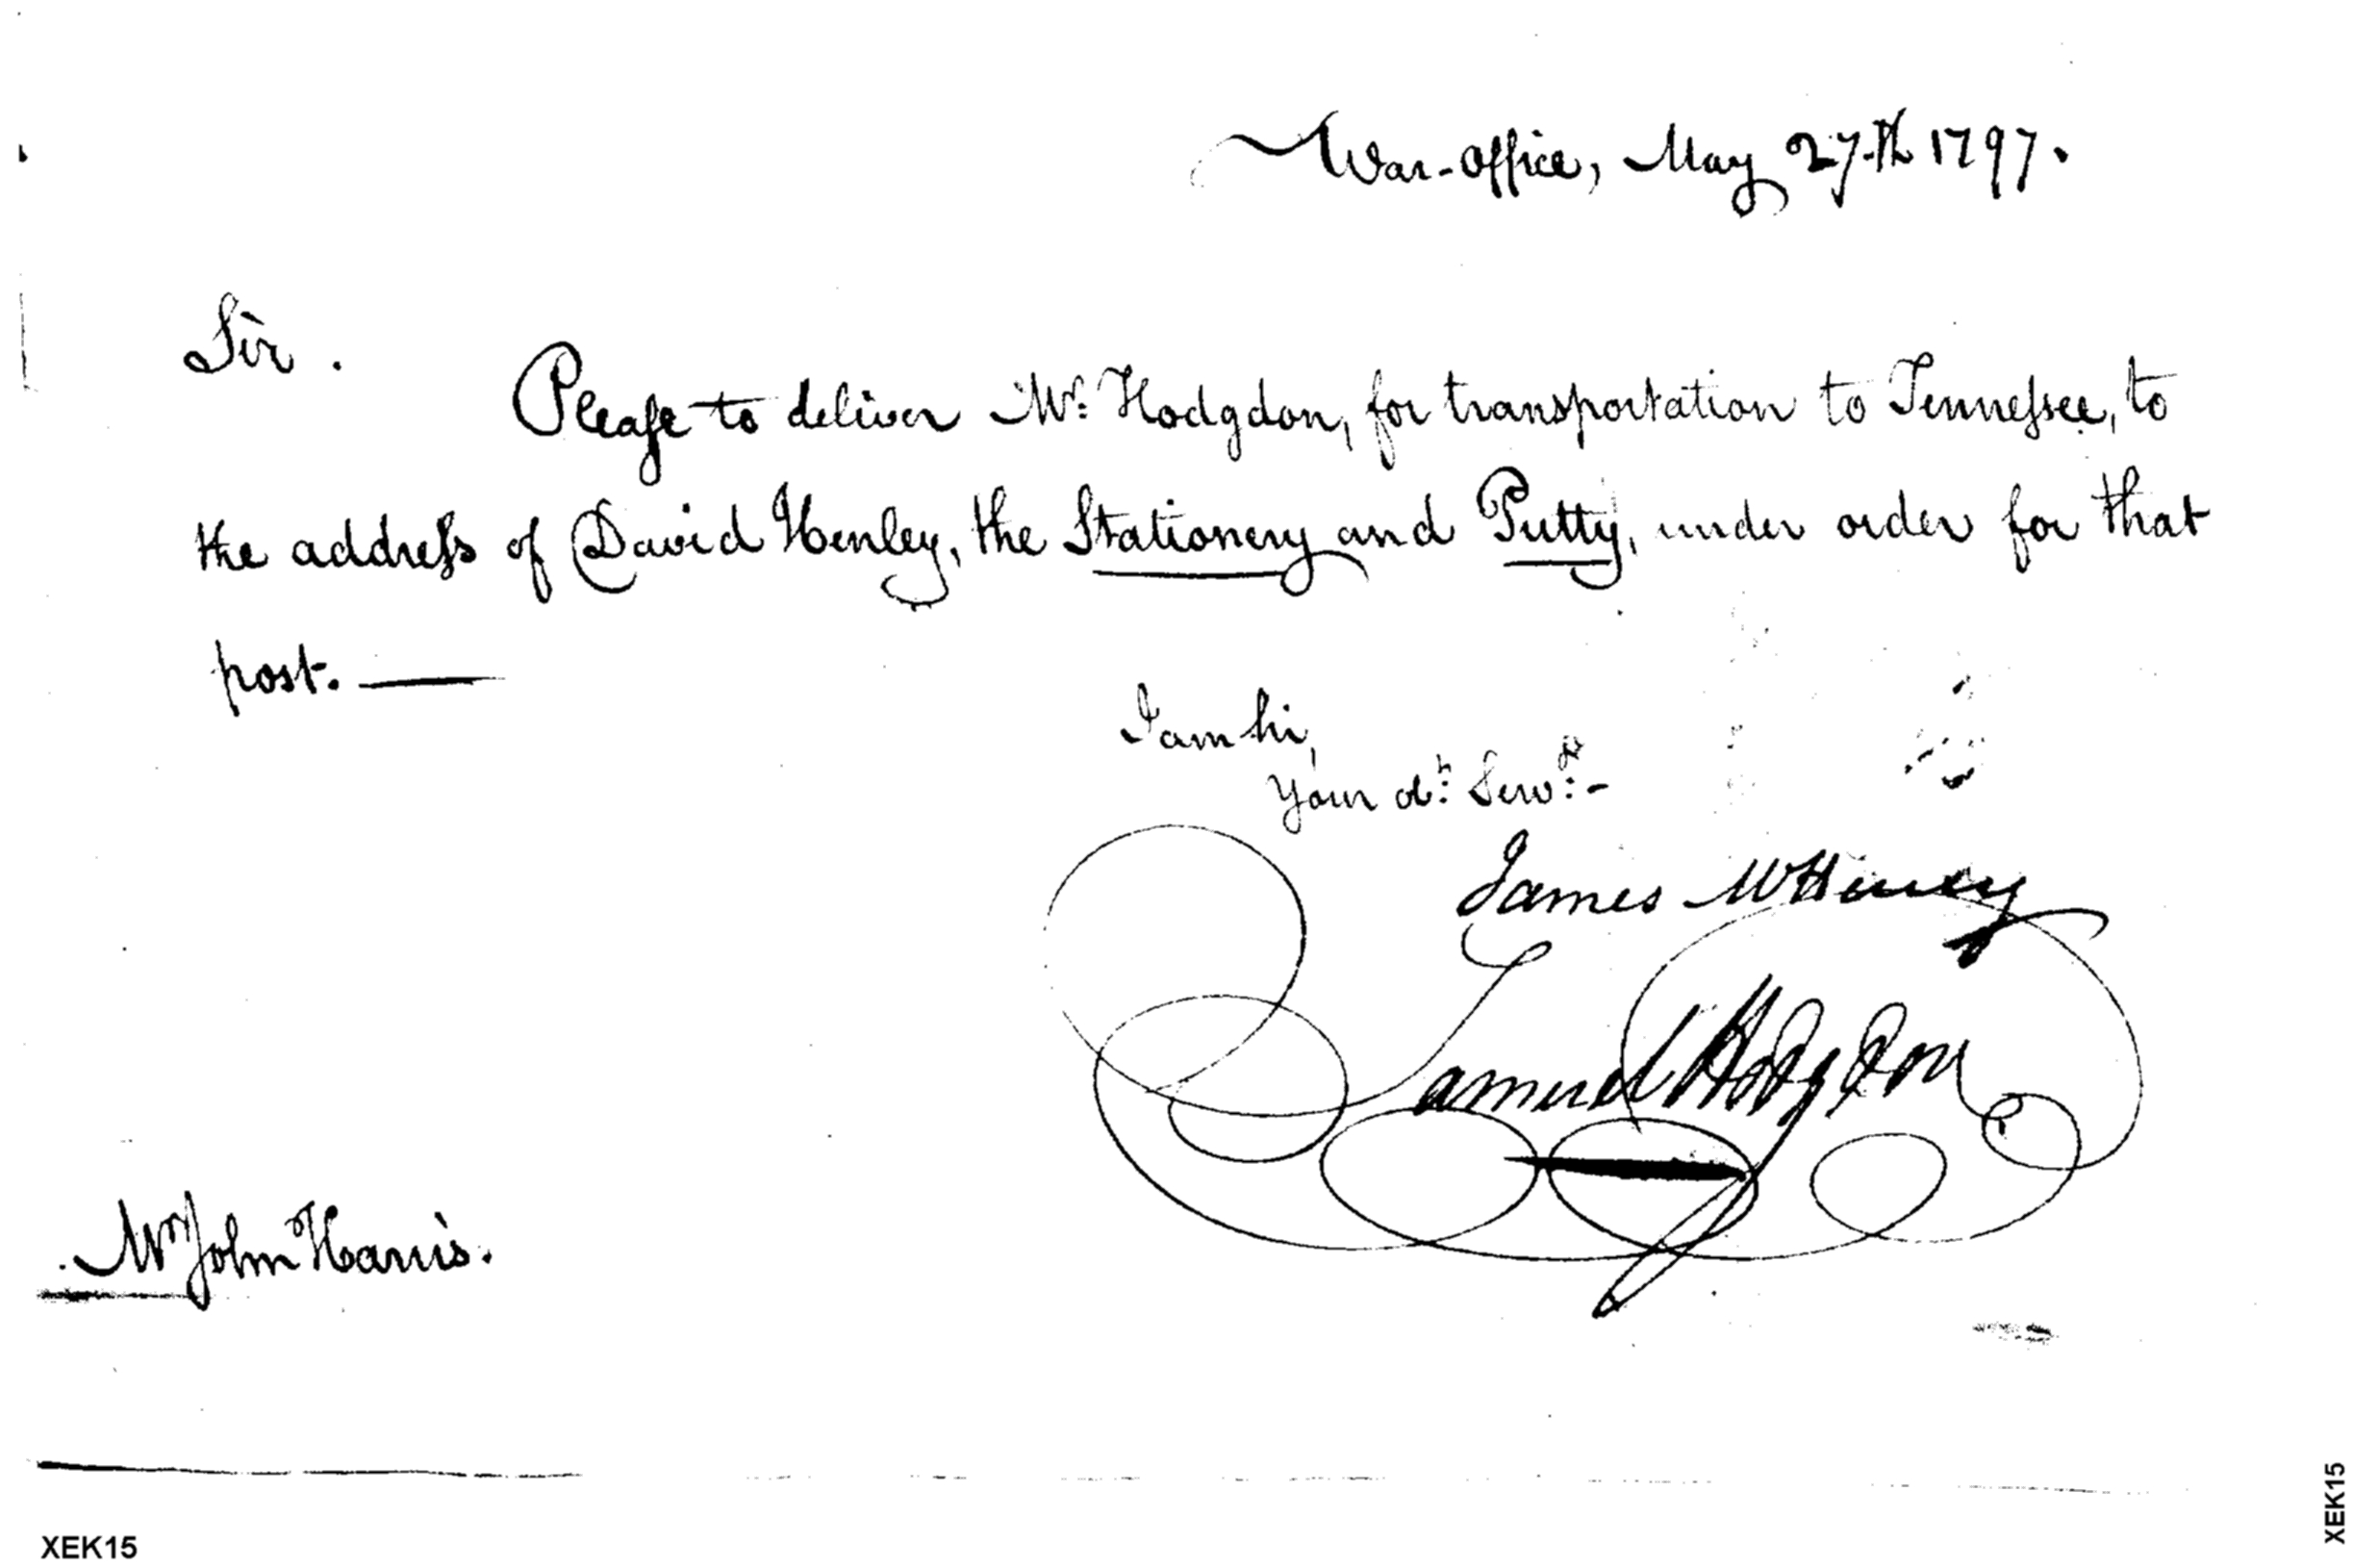 War-Office, May 27th 1797.
Sir.
Please to deliver Mr: Hodgdon, for transportation to Tennessee, to
the address of David Henley, the Stationery and Putty, under order for that
post. —
I am Sir,
Your ob.t: Serv.t:-
James McHenry
Samuel Hodgdon
Mr John Harris.
XEK15
XEK15